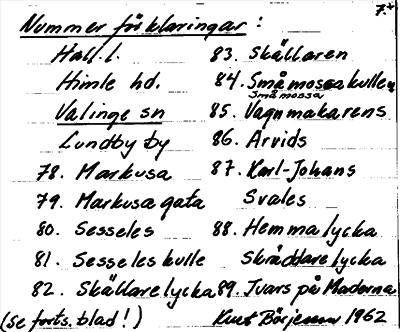 7.
Nummerförklaringar:
Hall. l.
Himle hd.
Valinge sn
Lundby by
78. Markusa
79. Markusa gata
80. Sesseles
81. Sesseles kulle
82. Skällarelycka
(se forts. blad!)
83. Skällaren
84. Små mossakullen
Småmossa
85. Vagnmakarens
86. Arvids
87. Karl-Johans
Svales
88. Hemmalycka
Skräddarelycka
89. Ivars på Maderna
Kurt Börjesson 1962